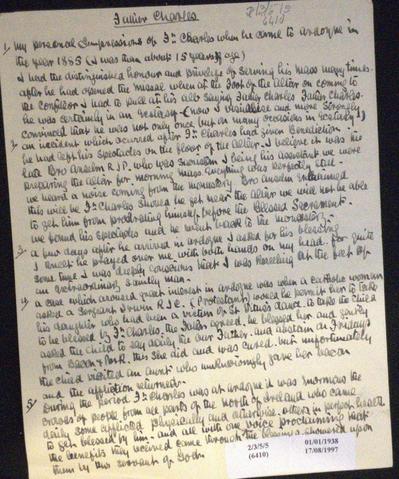 Father Charles
2/3/5/5
6410
1, my personal Impressions of Fr Charles when he came to Ardoyne in
the year 1885 (I was than about 15 years of age)
I had the distinguished honour and privilege of serving his mass many times.
after he had opened the missal when at the foot of the altar on coming to
the confiteor I had to pull at his alb saying Father Charles Father Charles.
he was certainly in an Yestasy - (now I understand and more strongly
convinced that he was not only once (but on many occasions in Yestasy)
2, an incident which occured after Fr Charles had given Benediction.
he had left his spectacles on the floor of the altar. I believe it was the
late Bro Anselm R.I.P who was Sacristan I being his assistant we were
preparing the altar for morning mass everything was perfectly still
we heard a noise coming from the monastery Bro Anselm exclaimed
this will be Fr Charles should he get near the altar we will not be able
to get him from prostrating himself before the Blessed Sacrament.
we found his spectacles and he went back to the monastery.
3, a few days after he arrived in ardoyne I asked for his blessing
I knelt he prayed over me with both hands on my head. for quite
some time I was deeply conscious that I was kneeling at the feet of
an extraordinary saintly man.
4, a case which aroused great interest in ardoyne was when a catholic woman
asked a Sergeant R.I.C. (Protestant) would he permit her to take
his daughter who had been a victim of St Vitus's dance. to take the child
to be blessed by Fr Charles, the father agreed. he blessed her and gently
asked the child to say daily the our Father. and abstain on Fridays
from Bacon & Pork. this she did and was cured. but unfortunately
the child visited an aunt who unknowingly gave her bacon
and the affliction returned.
5, During the period Fr Charles was at ardoyne it was enormous the
crowds of people from all parts of the north of Ireland who came
daily some afflicted physically and otherwise others in perfect health
to get blessed by him - and all with one voice proclaiming that
the benefits they received came through the blessings showered upon
them by this servant of God.
2/3/5/5
(6410)
01/01/1938
17/08/1997